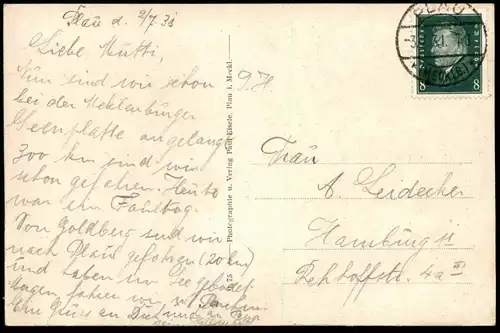 Plau d. 2/7. 31
Liebe Mutti,
Nun sind wir schon
bei der Meklenbürger
Seenplatte angelangt
300 km sind wir
schon gefahren. Heute
war ein Faultag.
Von Goldberg sind wir
nach Plau gefahren (20 km)
und haben im See gebadet
fahren wir n.
Ein Gruss an Dich und
75 Photographie u. Verlag Paul Eisele, Plau i. Meckl.
PLAU
(MECKLB)
8 8
Frau
A. Leidecker
Hamburg 11
Rehhoffstr. 4a III